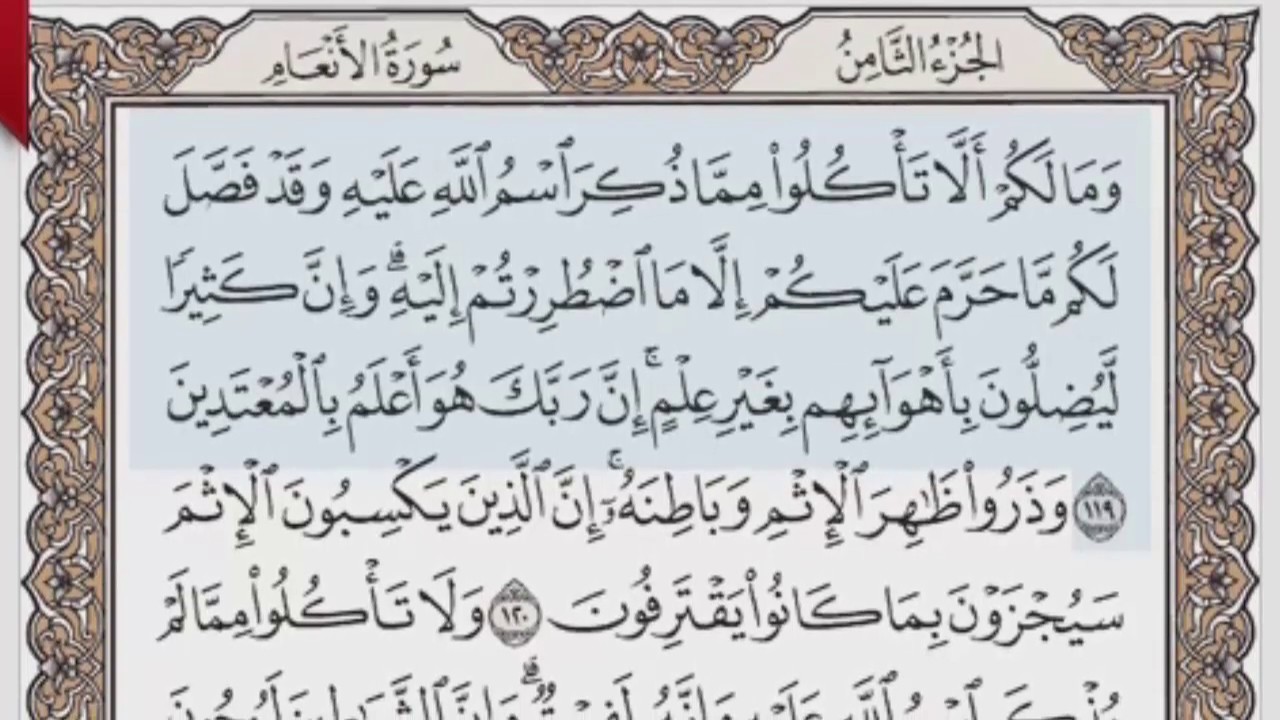 الجُزْءُ الثَّامِنُ
سُورَةُ الأَنْعَامِ
وَمَا لَكُمْ أَلَّا تَأْكُلُوا۟ مِمَّا ذُكِرَ ٱسْمُ ٱللَّهِ عَلَيْهِ وَقَدْ فَصَّلَ
لَكُم مَّا حَرَّمَ عَلَيْكُمْ إِلَّا مَا ٱضْطُرِرْتُمْ إِلَيْهِ ۗ وَإِنَّ كَثِيرًا
لَّيُضِلُّونَ بِأَهْوَآئِهِم بِغَيْرِ عِلْمٍ ۚ إِنَّ رَبَّكَ هُوَ أَعْلَمُ بِٱلْمُعْتَدِينَ
١١٩ وَذَرُوا۟ ظَٰهِرَ ٱلْإِثْمِ وَبَاطِنَهُۥٓ ۚ إِنَّ ٱلَّذِينَ يَكْسِبُونَ ٱلْإِثْمَ
سَيُجْزَوْنَ بِمَا كَانُوا۟ يَقْتَرِفُونَ ١٢٠ وَلَا تَأْكُلُوا۟ مِمَّا لَمْ
يُذْكَرِ ٱسْمُ ٱللَّهِ عَلَيْهِ وَإِنَّهُۥ لَفِسْقٌ ۗ وَإِنَّ ٱلشَّيَٰطِينَ لَيُوحُونَ